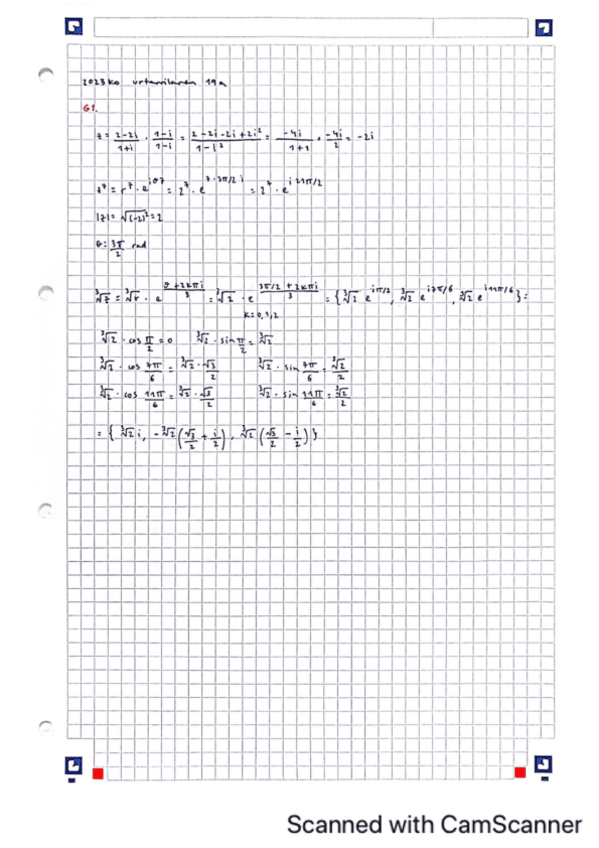 2023ko urtarrilaren 19a
G1.
z = 2-2i/1+i · 1-i/1-i = 2-2i-2i+2i²/1-i² = -4i/1+1 = -4i/2 = -2i
z⁷ = r⁷ · e^{iθ7} = 2⁷ · e^{7·3π/2 i} = 2⁷ · e^{i 21π/2}
|z| = √(-2)² = 2
θ: 3π/2 rad
∛z = ∛r · e^{θ+2kπi/3} = ∛2 · e^{3π/2+2kπi/3} = {∛2 e^{iπ/2}, ∛2 e^{i7π/6}, ∛2 e^{i11π/6}} =
k=0,1,2
∛2 · cos π/2 = 0 ∛2 · sin π/2 = ∛2
∛2 · cos 7π/6 = ∛2 · √3/2 ∛2 · sin 7π/6 = ∛2/2
∛2 · cos 11π/6 = ∛2 · √3/2 ∛2 · sin 11π/6 = ∛2/2
= {∛2 i, -∛2 (√3/2 + i/2), ∛2 (√3/2 - i/2)}
Scanned with CamScanner